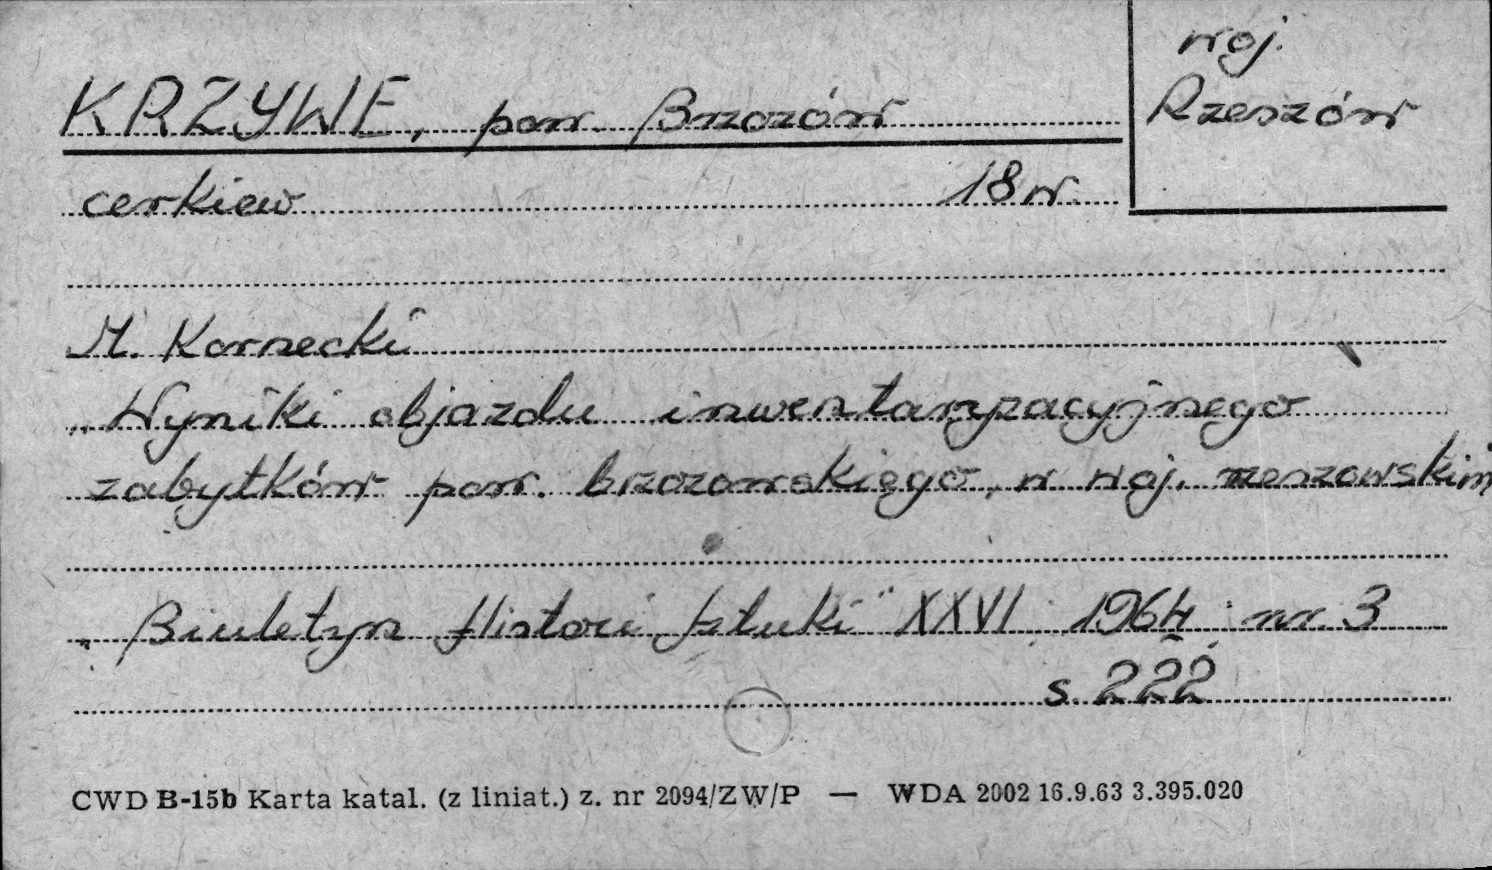 woj.
Rzeszów
KRZYWE, pow. Brzozów
cerkiew 18 w.
M. Kornecki
„Wyniki objazdu inwentaryzacyjnego
zabytków pow. brzozowskiego, w woj. rzeszowskim
„Biuletyn Historii Sztuki" XXVI : 1964 : nr 3
s. 222
CWD B-15b Karta katal. (z liniat.) z. nr 2094/ZW/P — WDA 2002 16.9.63 3.395.020